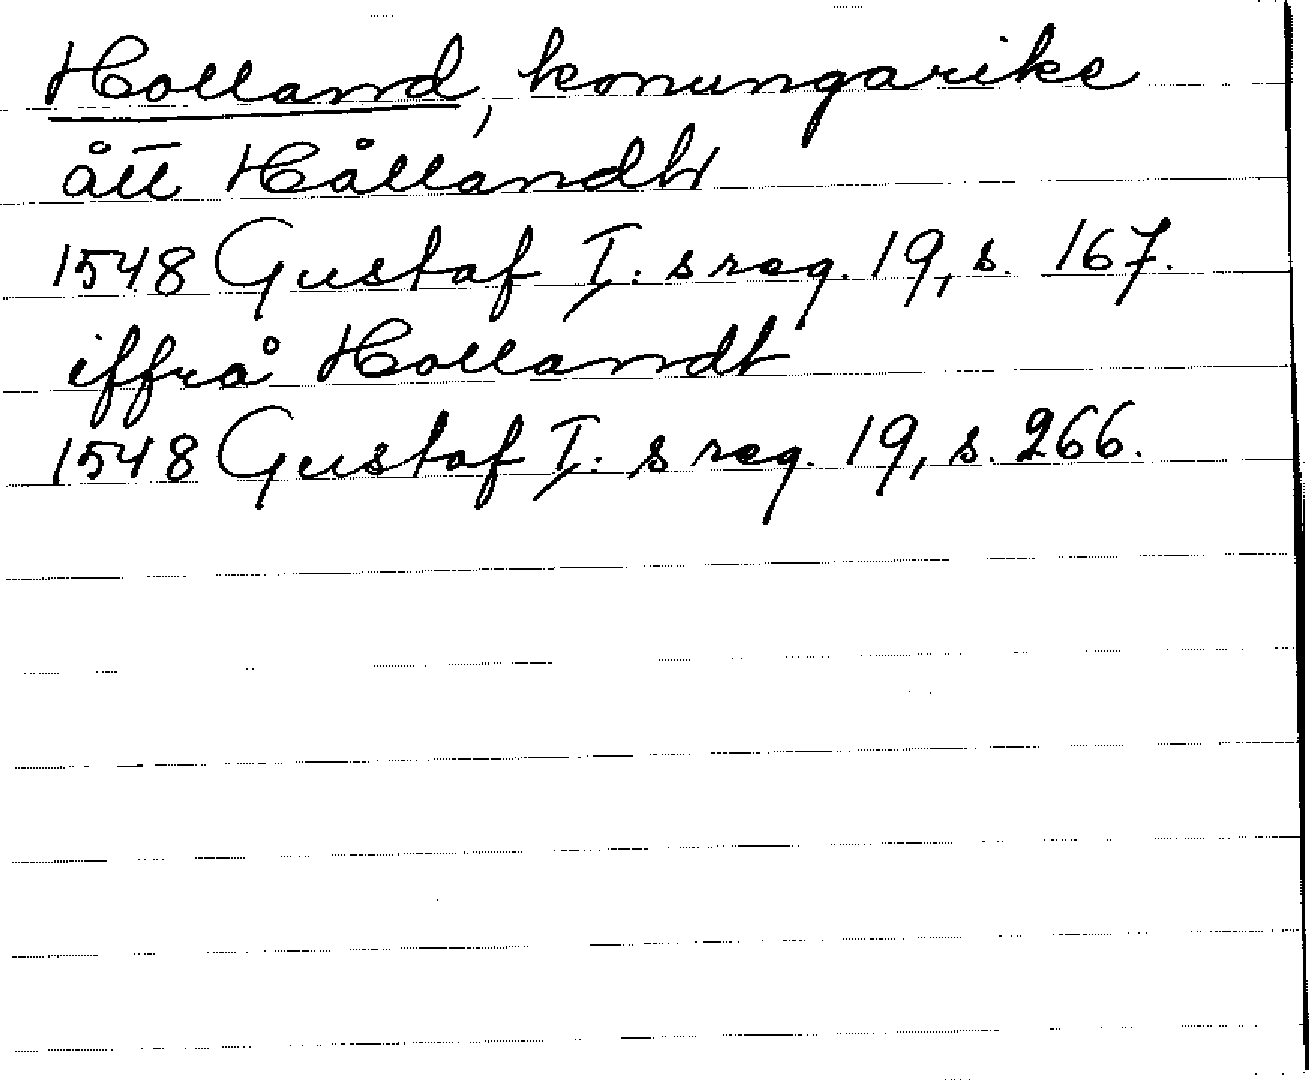 Holland, konungarike
ått Hållandh
1548 Gustaf I:s reg. 19, s. 167.
iffrå Hollandt
1548 Gustaf I:s reg. 19, s. 266.